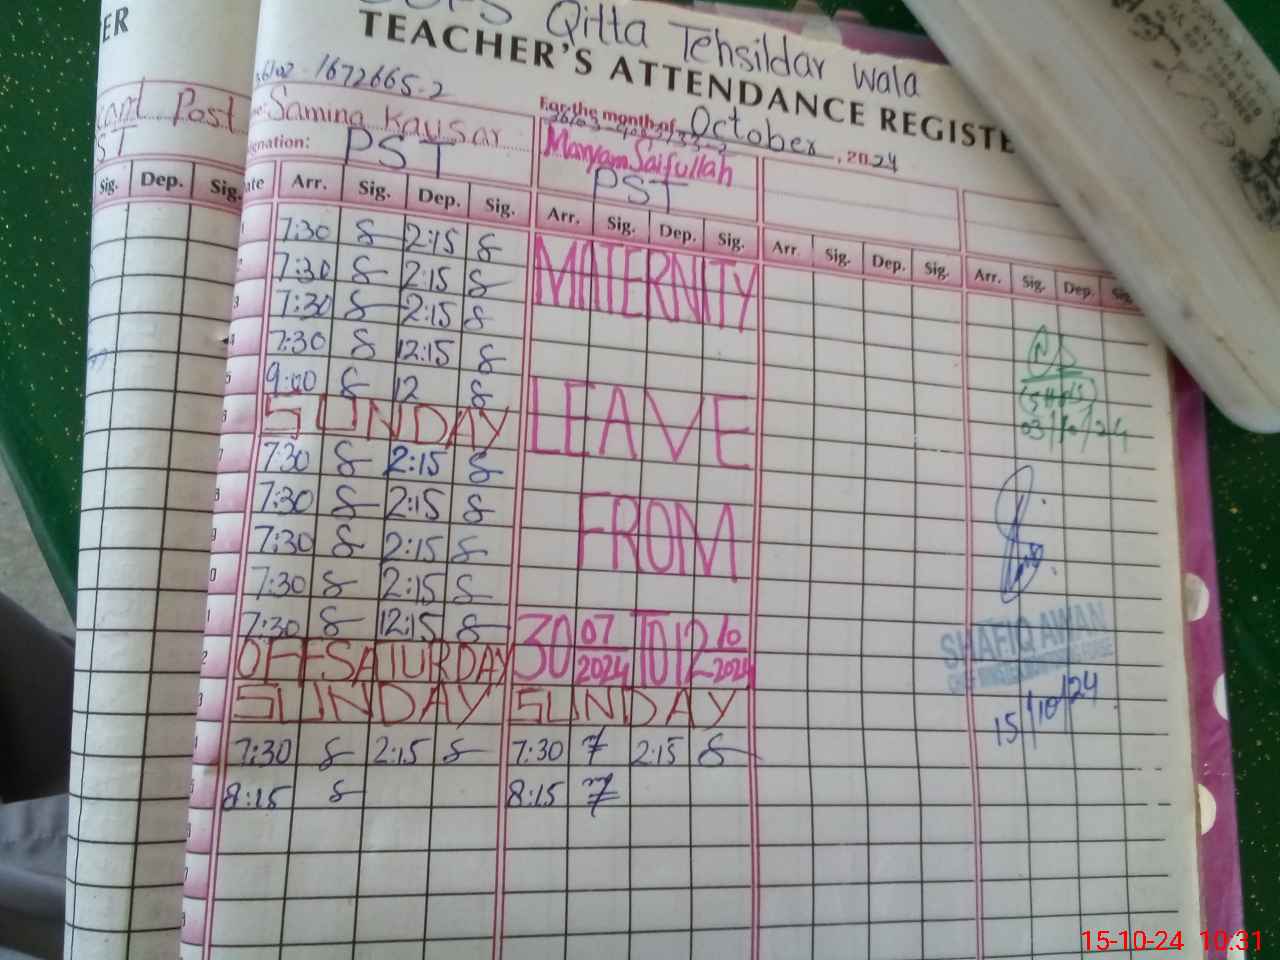 Qitta Tehsildar Wala
TEACHER'S ATTENDANCE REGISTE
ER
1672665-2
For the month of October, 2024
Samina Kausar
Maryam Saifullah
Post
gnation: PST
PST
Sig. Dep. Sig.
ate Arr. Sig. Dep. Sig. Arr. Sig. Dep. Sig. Arr. Sig. Dep. Sig. Arr. Sig. Dep.
7:30 8 2:15 8
7:30 8 2:15 8
7:30 8 2:15 8
7:30 8 12:15 8
9:00 8 12 8
SUNDAY
7:30 8 2:15 8
7:30 8 2:15 8
7:30 8 2:15 8
7:30 8 2:15 8
7:30 8 12:15 8
OFF SATURDAY
SUNDAY
7:30 8 2:15 8
8:15 8
MATERNITY
LEAVE
FROM
30 07/2024 TO 12 10/2024
SUNDAY
7:30 2:15
8:15
03/10/24
SHAFIQ AWAN
15/10/24
15-10-24 10:31